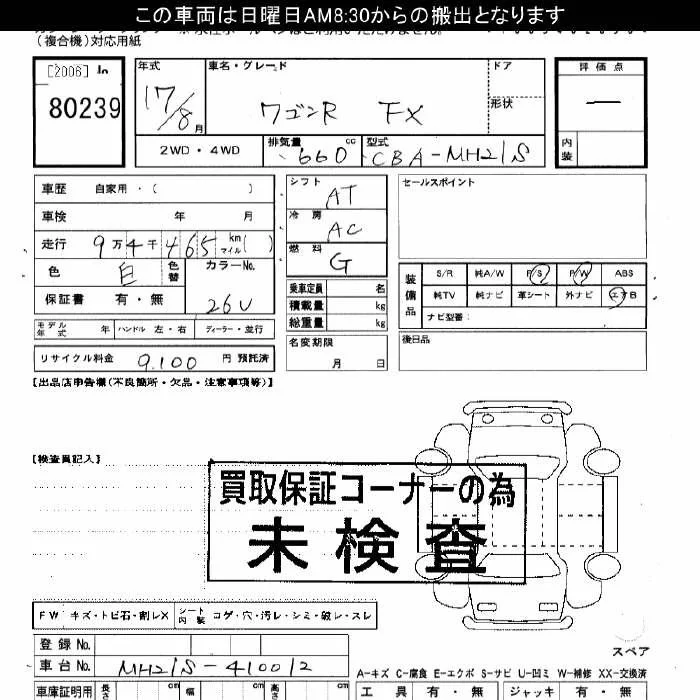 この車両は日曜日AM8:30からの搬出となります
(複合機)対応用紙
[2006] In
80239
年式 17/8月
車名・グレード ワゴンR FX
ドア
形状
評価点
—
内装
2WD・4WD
排気量 660 cc
型式 CBA-MH21S
車歴 自家用・( )
車検 年 月
走行 9万4千465 km マイル( )
色 白 色替
カラーNo. 26U
保証書 有・無
モデル年式 年 ハンドル 左・右 ディーラー・並行
リサイクル料金 9.100 円 預託済
シフト AT
冷房 AC
燃料 G
乗車定員 名
積載量 kg
総重量 kg
名変期限
月 日
セールスポイント
装備品
S/R 純A/W P/S P/W ABS
純TV 純ナビ 革シート 外ナビ エアB
ナビ型番:
後日品
【出品店申告欄(不良箇所・欠品・注意事項等)】
【検査員記入】
買取保証コーナーの為
未検査
FW キズ・トビ石・割レX シート内装 コゲ・穴・汚レ・シミ・破レ・スレ
登録No.
車台No. MH21S-410012
スペア
A-キズ C-腐食 E-エクボ S-サビ U-凹ミ W-補修 XX-交換済
車庫証明用 長さ cm 幅 cm 高さ cm
工具 有・無 ジャッキ 有・無